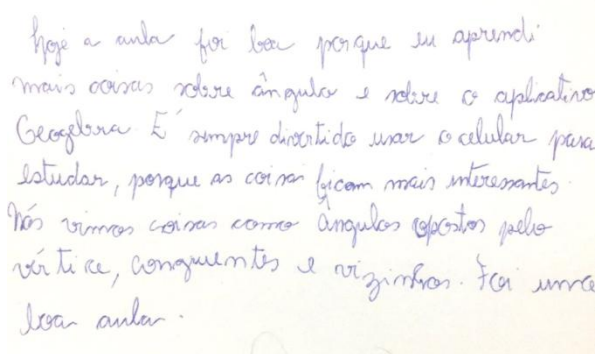 hoje a aula foi boa porque eu aprendi
mais coisas sobre ângulo e sobre o aplicativo
Geogebra É sempre divertido usar o celular para
estudar, porque as coisas ficam mais interessantes.
Nós vimos coisas como ângulos opostos pelo
vértice, congruentes e vizinhos. Foi uma
boa aula.